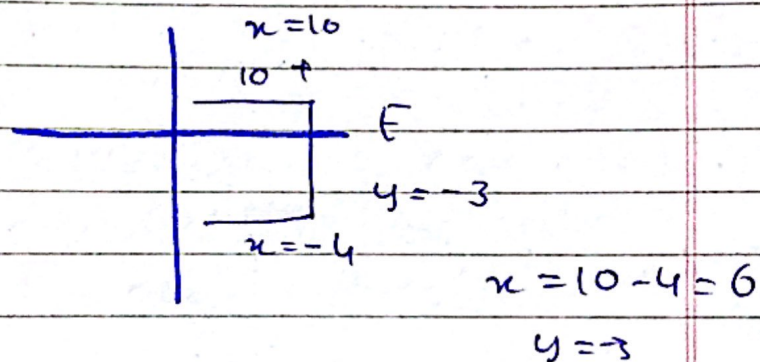 x = 10
10 +
E
y = -3
x = -4
x = 10 - 4 = 6
y = -3